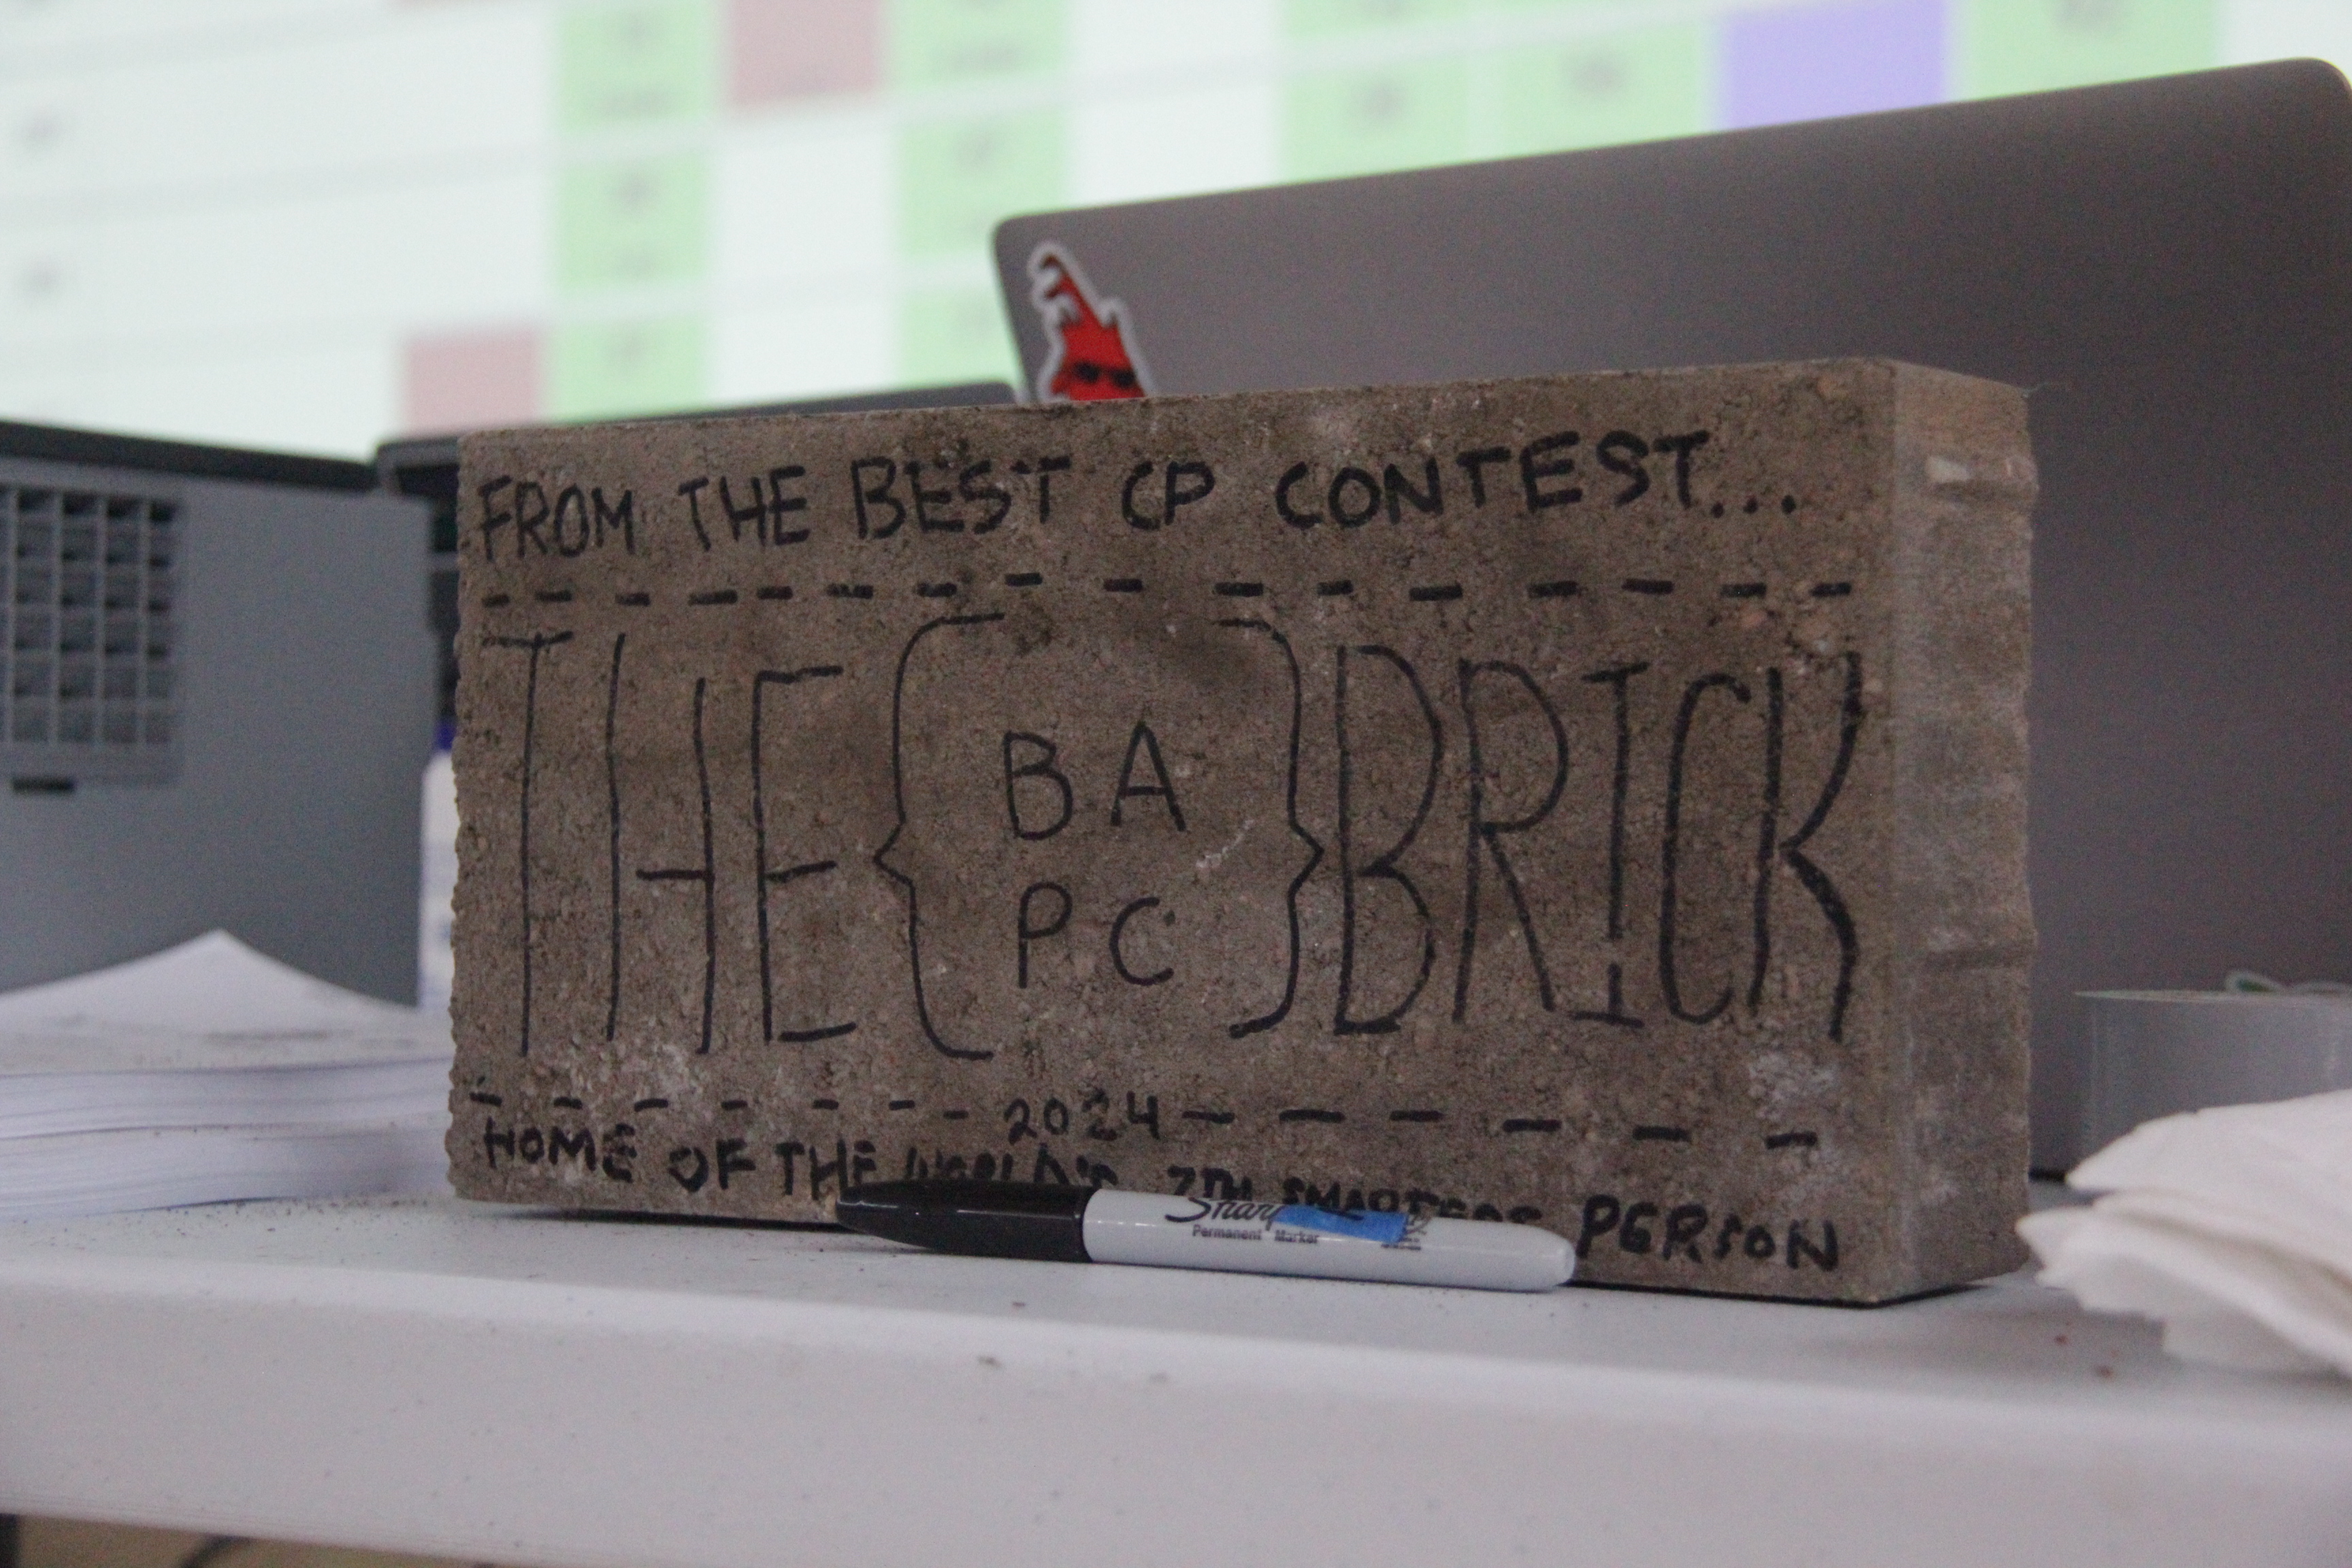 FROM THE BEST CP CONTEST...
THE { BA
PC } BRICK
2024
HOME OF THE WORLD'S 7TH SMARTEST PERSON
Sharp
Permanent Marker